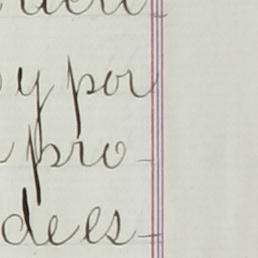 y por
pro-
de es-